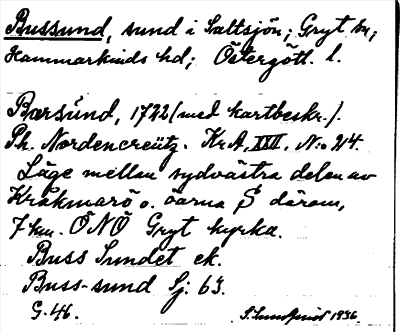 Bussund, sund i Saltsjön; Gryt sn;
Hammarkinds hd; Östergötl. l.
Barsund, 1722 (med kartbeskr.).
Ph. Nordencreütz. Kr A, XXII, N:o 24.
Läge mellan sydvästra delen av
Kråkmarö o. öarna S därom,
7 km. ÖNÖ Gryt kyrka.
Buss Sundet ek.
Buss-sund Sj. 63.
G. 46.
1936.